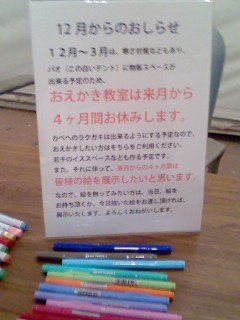 12月からのおしらせ
12月～3月は、寒さ対策などもあり、
パオ（この白いテント）に物販スペースが
出来る予定のため、
おえかき教室は来月から
4ヶ月間お休みします。
カベへのラクガキは出来るようにする予定なので、
おえかきしたい方はそちらをご利用ください。
若干のイススペースなども作る予定です。
また、それに伴って、来月からの4ヶ月間は
皆様の絵を展示したいと思います。
なので、絵を飾ってみたい方は、当日、絵を
お持ち頂くか、今日描いた絵をお渡し頂ければ、
展示いたします。よろしくおねがいします。